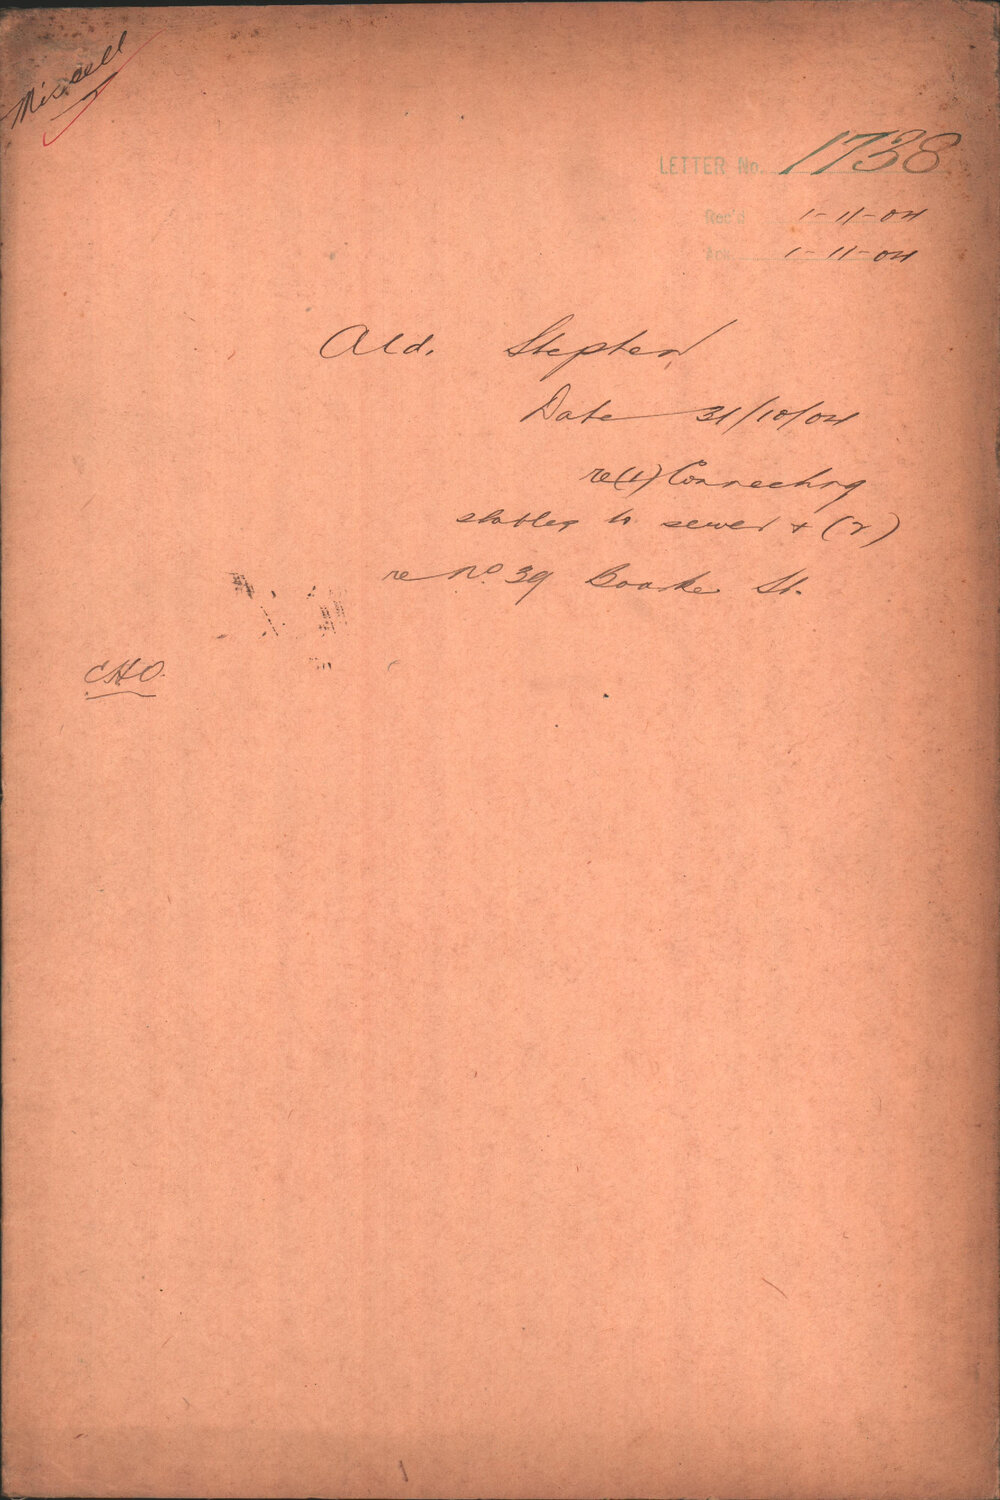 Miscell
LETTER No. 1738
Rec'd 1-11-04
Ack 1-11-04
Ald. Stephen
Date 31/10/04
re (1) Connecting
stables to sewer & (2)
re No. 39 St.
CHO.